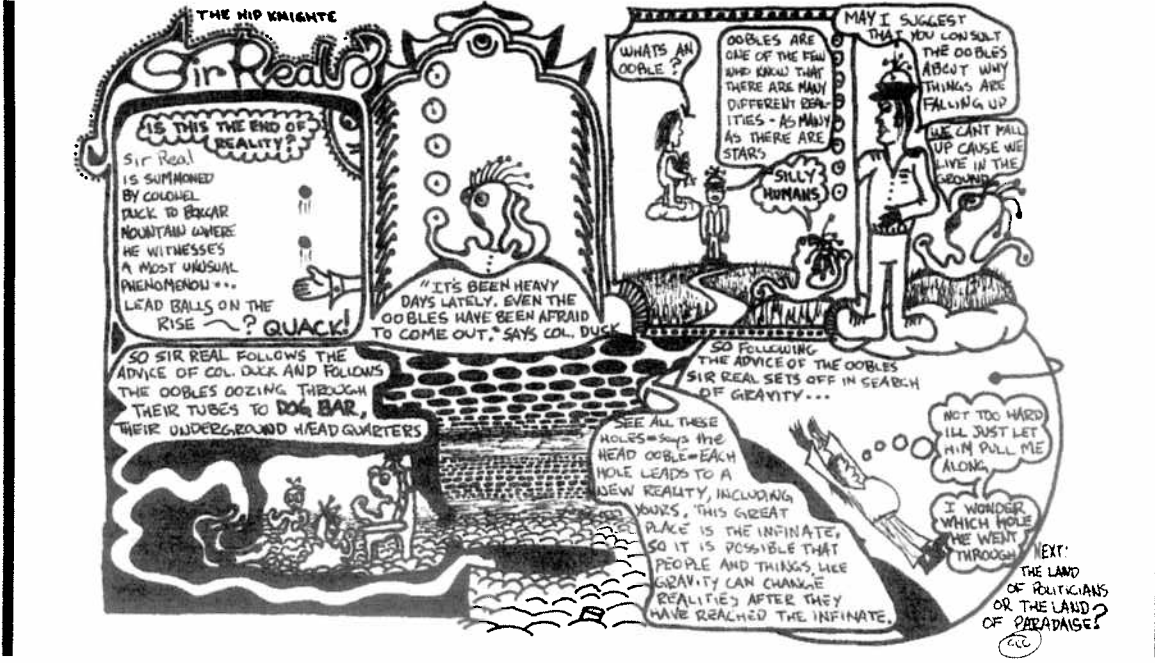 THE HIP KNIGHTE
Sir Real
IS THIS THE END OF
REALITY?
Sir Real
IS SUMMONED
BY COLONEL
DUCK TO BOXCAR
MOUNTAIN WHERE
HE WITNESSES
A MOST UNUSUAL
PHENOMENON...
LEAD BALLS ON THE
RISE ~? QUACK!
"IT'S BEEN HEAVY
DAYS LATELY. EVEN THE
OOBLES HAVE BEEN AFRAID
TO COME OUT." SAYS COL. DUCK
WHATS AN
OOBLE?
OOBLES ARE
ONE OF THE FEW
WHO KNOW THAT
THERE ARE MANY
DIFFERENT REAL-
ITIES - AS MANY
AS THERE ARE
STARS
SILLY
HUMANS
MAY I SUGGEST
THAT YOU CONSULT
THE OOBLES
ABOUT WHY
THINGS ARE
FALLING UP
WE CANT FALL
UP CAUSE WE
LIVE IN THE
GROUND
SO SIR REAL FOLLOWS THE
ADVICE OF COL. DUCK AND FOLLOWS
THE OOBLES OOZING THROUGH
THEIR TUBES TO DOG BAR,
THEIR UNDERGROUND HÆADQUARTERS
SEE ALL THESE
HOLES=says the
HEAD OOBLE=EACH
HOLE LEADS TO A
NEW REALITY, INCLUDING
YOURS. THIS GREAT
PLACE IS THE INFINATE.
SO IT IS POSSIBLE THAT
PEOPLE AND THINGS LIKE
GRAVITY CAN CHANGE
REALITIES AFTER THEY
HAVE REACHED THE INFINATE.
SO FOLLOWING
THE ADVICE OF THE OOBLES
SIR REAL SETS OFF IN SEARCH
OF GRAVITY...
NOT TOO HARD
ILL JUST LET
HIM PULL ME
ALONG
I WONDER
WHICH HOLE
HE WENT
THROUGH
NEXT:
THE LAND
OF POLITICIANS
OR THE LAND
OF PARADAISE?
CCC